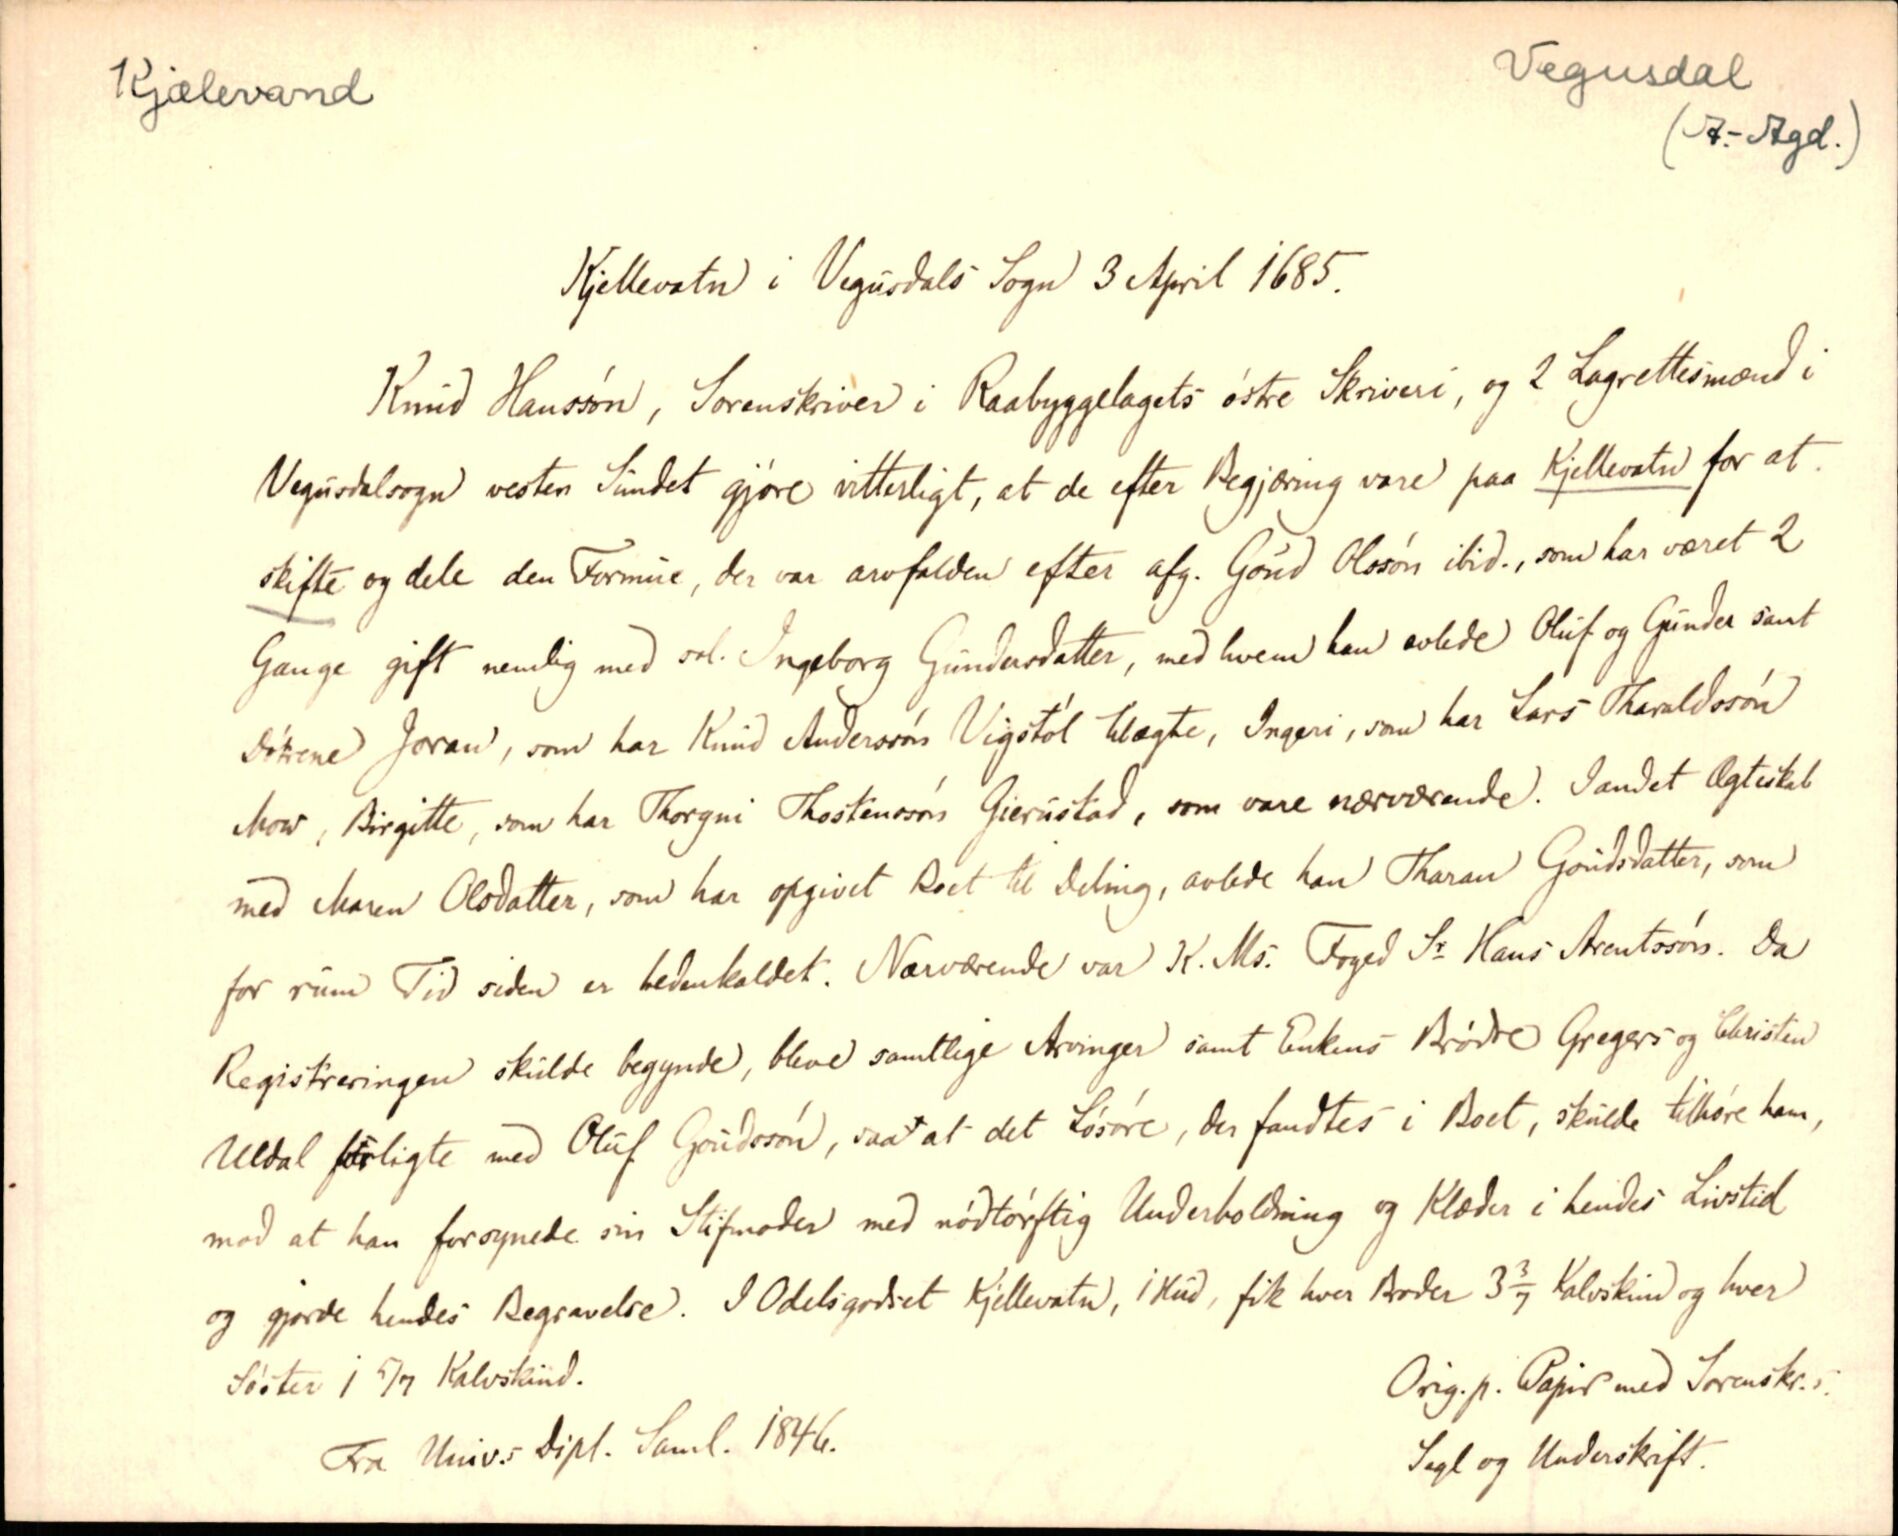 Kjælevand
Vegusdal
(A.-Agd.)
Kjellevatn i Vegusdals Sogn 3 April 1685.
Knud Hanssön, Sorenskriver i Raabyggelagets östre Skriveri, og 2 Lagrettesmænd i
Vegusdalsogn vesten Sundet gjöre vitterligt, at de efter Begjæring vare paa Kjellevatn for at
skifte og dele den Formue, der var arvfalden efter afg. Göud Olssön ibid., som har været 2
Gange gift nemlig med sal. Ingeborg Gundersdatter, med hvem han avlede Oluf og Gunder samt
Dötrene Joran, som har Knud Anderssön Vigstöl tilægte, Ingeri, som har Lars Tharaldssön
Mow, Birgitte, som har Thorgni Thostenssön Gierustad, som vare nærværende. I andet Ægteskab
med Maren Olsdatter, som har opgivet Boet til Deling, avlede han Tharan Göudsdatter, som
for rum Tid siden er hedenkaldet. Nærværende var K. Ms. Foged Sr Hans Arentssön. Da
Registreringen skulde begynde, bleve samtlige Arvinger samt Enkens Brödre Gregers og Christen
Uldal forligte med Oluf Göudssön, saa at det Lösöre, der fandtes i Boet, skulde tilhöre ham,
mod at han forsynede sin Stifmoder med nödtörftig Underholdning og Klæder i hendes Livstid
og gjorde hendes Begravelse. I Odelsgodset Kjellevatn, 1 Hud, fik hver Broder 3 3/7 Kalvskind og hver
Söster 1 5/7 Kalvskind.
Orig. p. Papir med Sorenskr.s.
Fra Univ.s Dipl. Saml. 1846.
Segl og Underskrift.